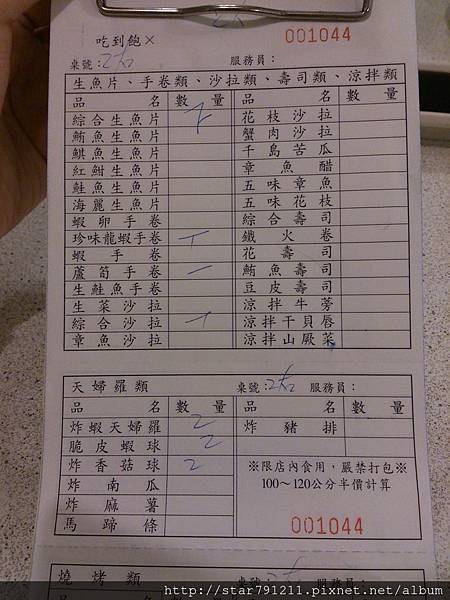 吃到飽×
001044
桌號：2大
服務員：
生魚片、手卷類、沙拉類、壽司類、涼拌類
品名 數量 品名 數量
綜合生魚片 花枝沙拉
鮪魚生魚片 蟹肉沙拉
鯕魚生魚片 千島苦瓜
紅魽生魚片 章魚醋
鮭魚生魚片 五味章魚
海鱺生魚片 五味花枝
蝦卵手卷 綜合壽司
珍味龍蝦手卷 鐵火卷
蝦手卷 花壽司
蘆筍手卷 一 鮪魚壽司
生鮭魚手卷 豆皮壽司
生菜沙拉 涼拌牛蒡
綜合沙拉 涼拌干貝唇
章魚沙拉 涼拌山厥菜
天婦羅類 桌號：2大 服務員：
品名 數量 品名 數量
炸蝦天婦羅 2 炸豬排
脆皮蝦球 2
炸香菇球 2 ※限店內食用，嚴禁打包※
炸南瓜 100～120公分半價計算
炸麻薯
馬蹄條 001044
燒烤類 桌號：2大 服務員：
http://star791211.pixnet.net/album